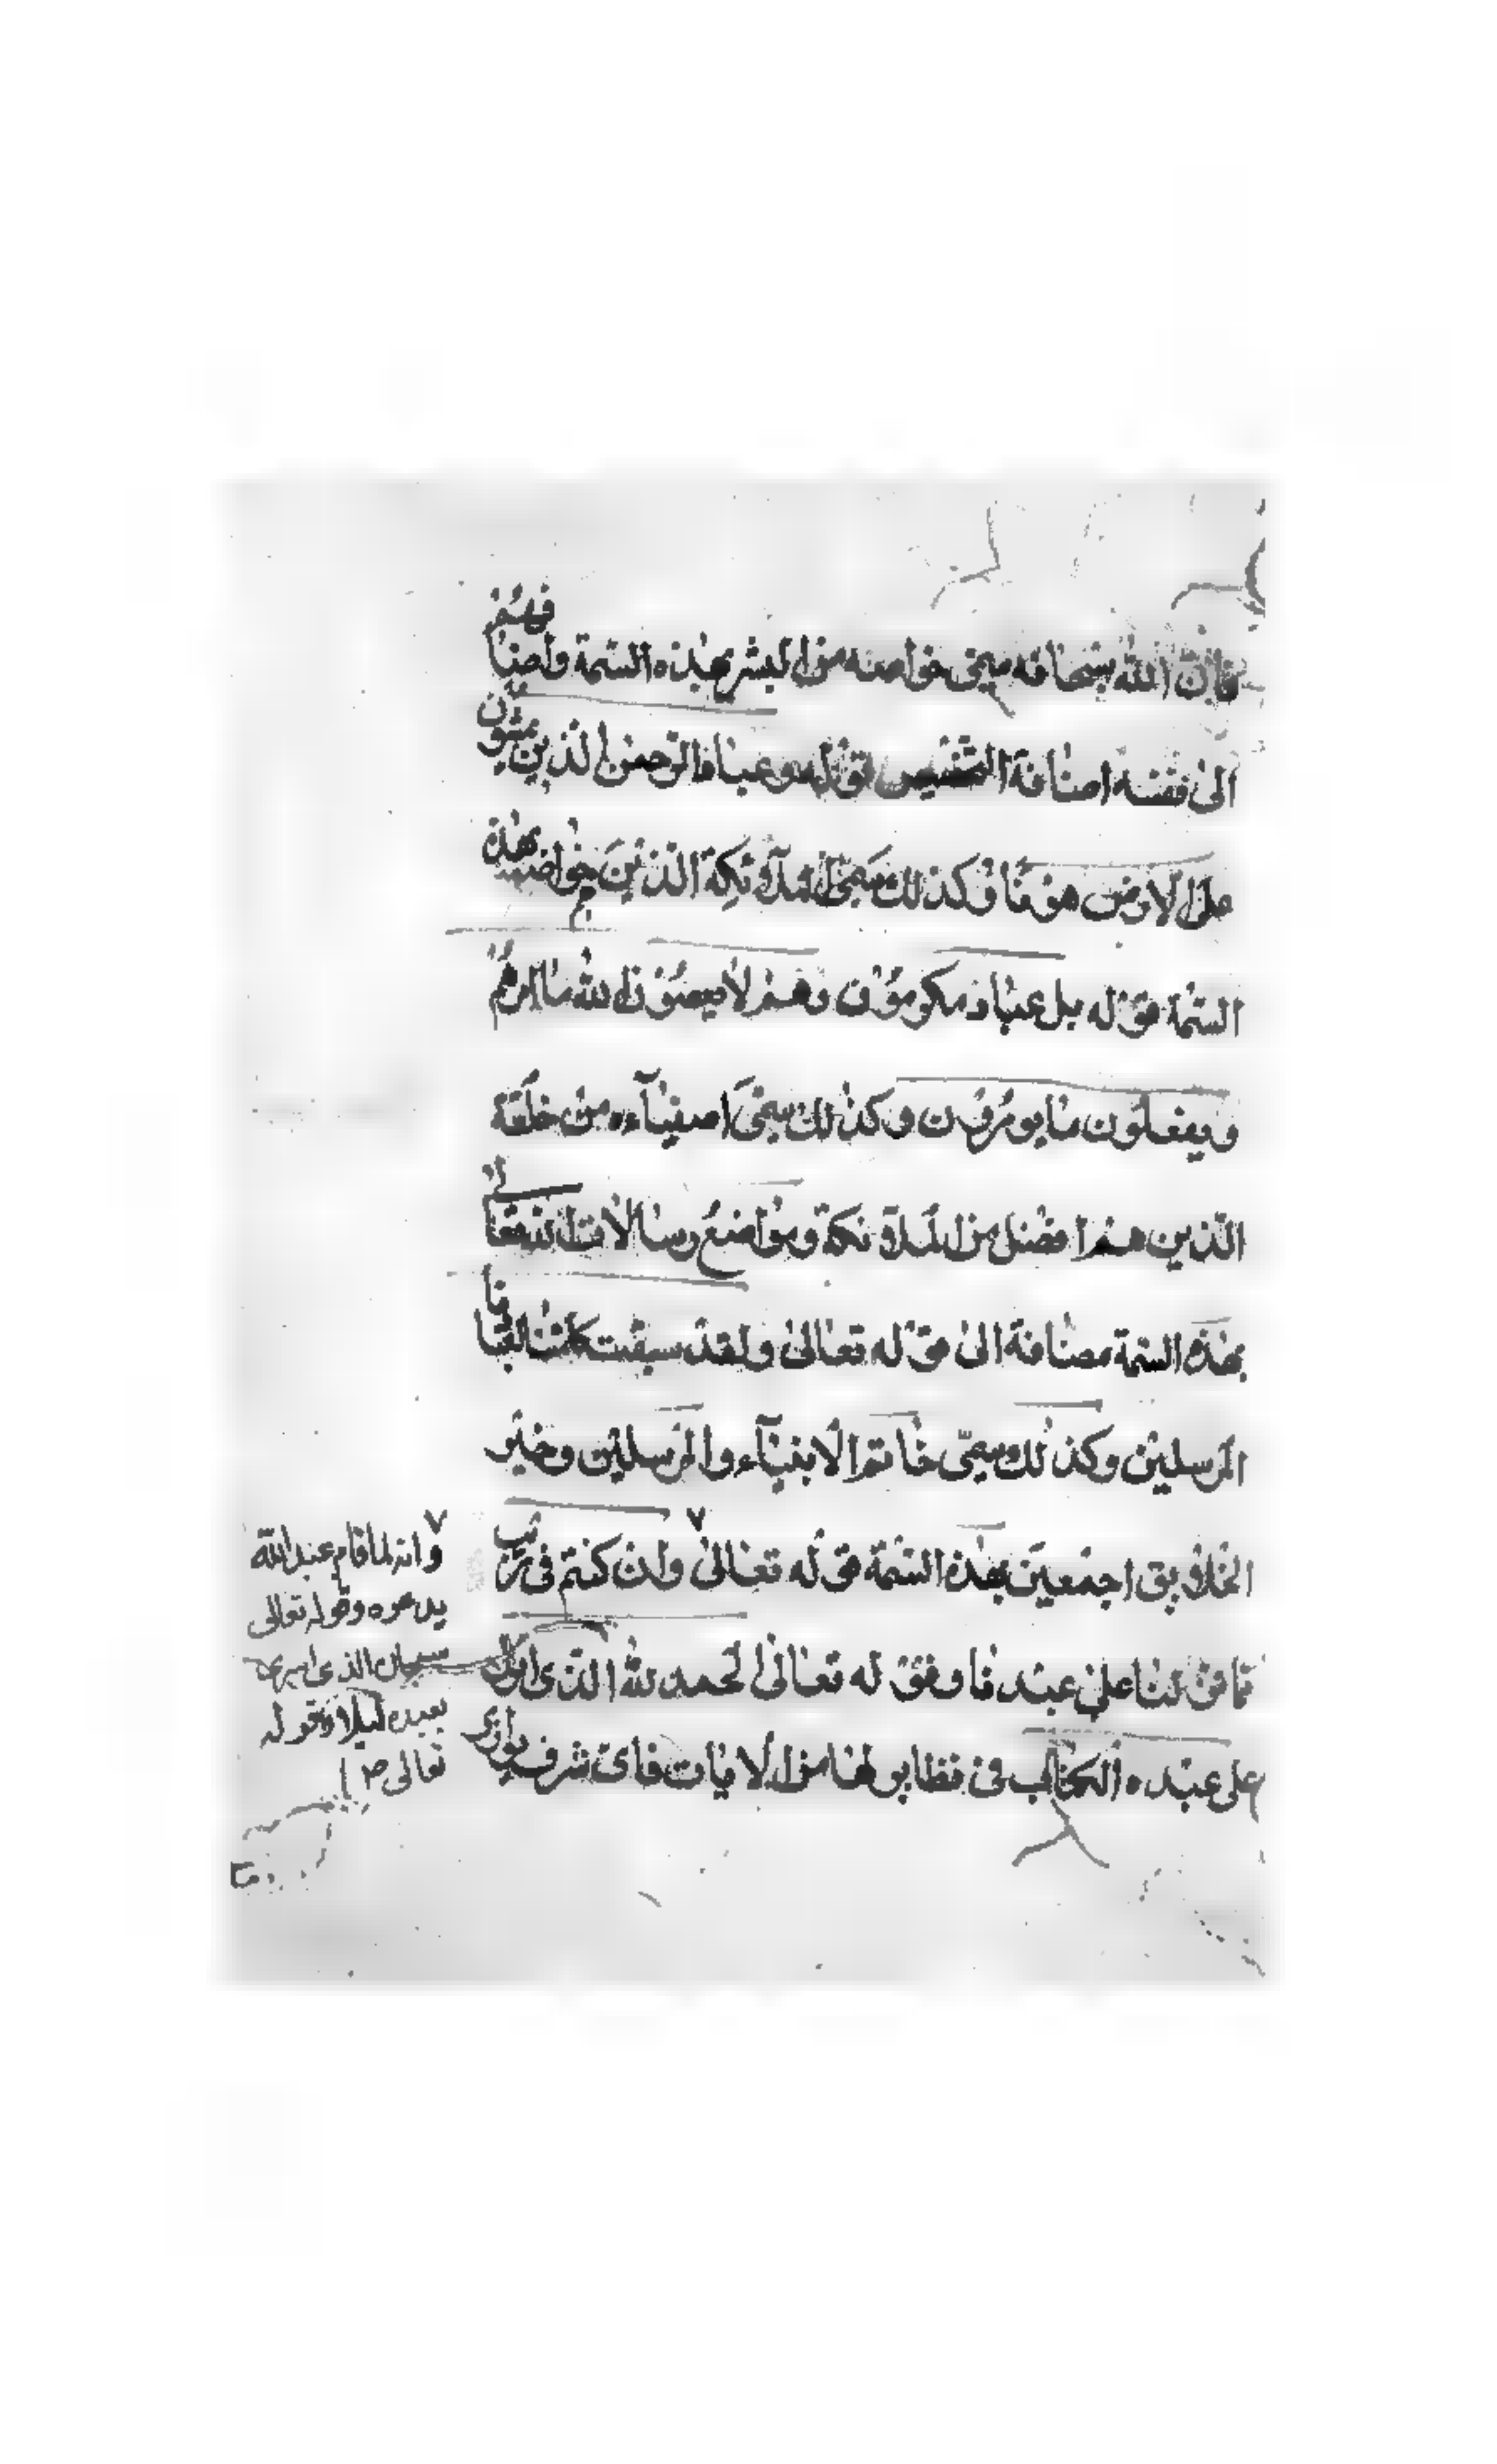 فان الله سبحانه سمى خواصه من البشر بهذه السمة واضافهم
الى نفسه اضافة التخصيص قوله وعباد الرحمن الذين يمشون
على الارض هونا وكذلك سمى الملائكة الذين هم خواصه بهذه
السمة قوله بل عباد مكرمون وهم لا يعصون الله ما امرهم
ويفعلون ما يومرون وكذلك سمى اصفياءه من خلقه
الذين هم افضل من الملائكة ومواضع رسالات الله تعالى
بهذه السمة مضافة الى قوله تعالى ولقد سبقت كلمتنا لعبادنا
المرسلين وكذلك سمى خاتم الانبياء والمرسلين وخير
الخلايق اجمعين بهذه السمة قوله تعالى وان كنتم في ريب
مما نزلنا على عبدنا وقوله تعالى الحمد لله الذى انزل
على عبده الكتاب في نظايرلها من الايات فاى شرف يوازى
وانه لما قام عبدالله
يدعوه وقوله تعالى
سبحان الذى اسرى
بعبده ليلا وقوله
تعالى